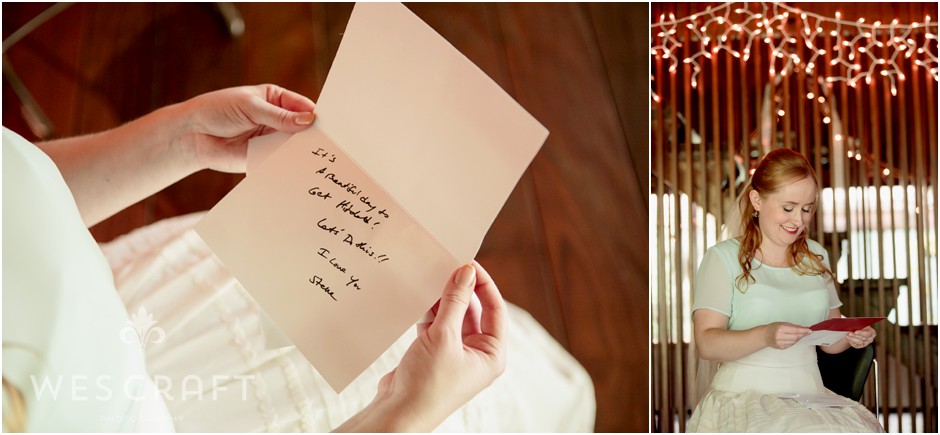 It's
A Beautiful day to
Get Hitched!
Let's Do this!!
I Love You
Steve
WES CRAFT
PHOTOGRAPHY